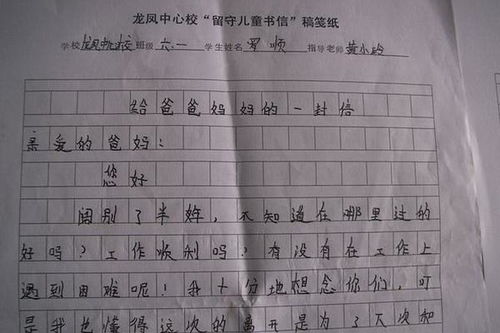 龙凤中心校“留守儿童书信”稿笺纸
学校龙凤中心校 班级 六.一 学生姓名 罗顺 指导老师 黄小玲
给爸爸妈妈的一封信
亲爱的爸妈：
您好
阔别了半年，不知道在哪里过的
好吗？工作顺利吗？有没有在工作上
遇到困难呢！我十分地想念你们，可
是我也懂得这次的离开是为了下次和